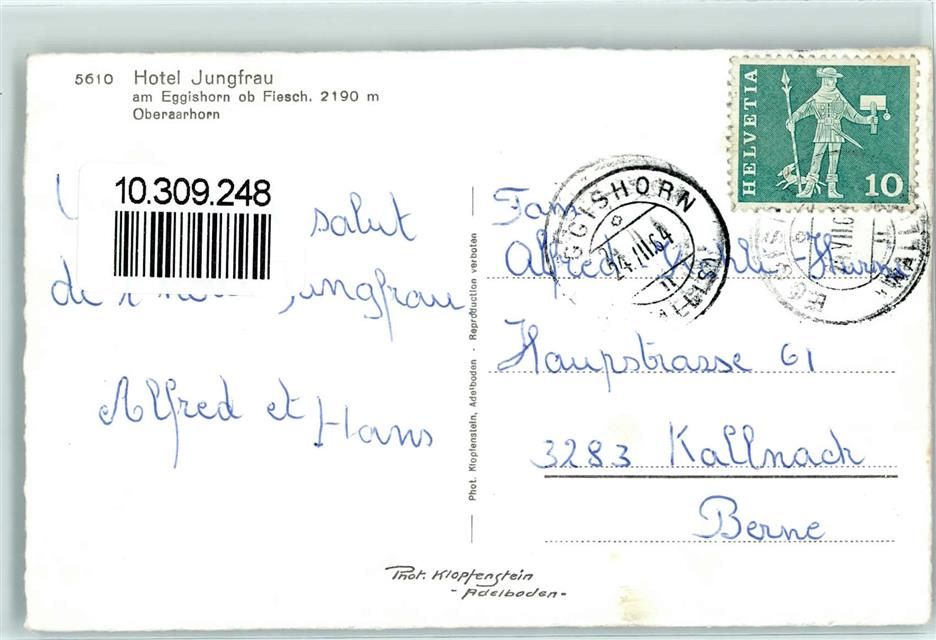 5610 Hotel Jungfrau
am Eggishorn ob Fiesch. 2190 m
Oberaarhorn
HELVETIA
10
10.309.248
EGGISHORN
24.III.64
salut
Jungfrau
Alfred et Hans
Phot. Klopfenstein, Adelboden - Reproduction verboten
Fam
Alfred
Haupstrasse 61
3283 Kallnach
Berne
Phot. Klopfenstein
- Adelboden -